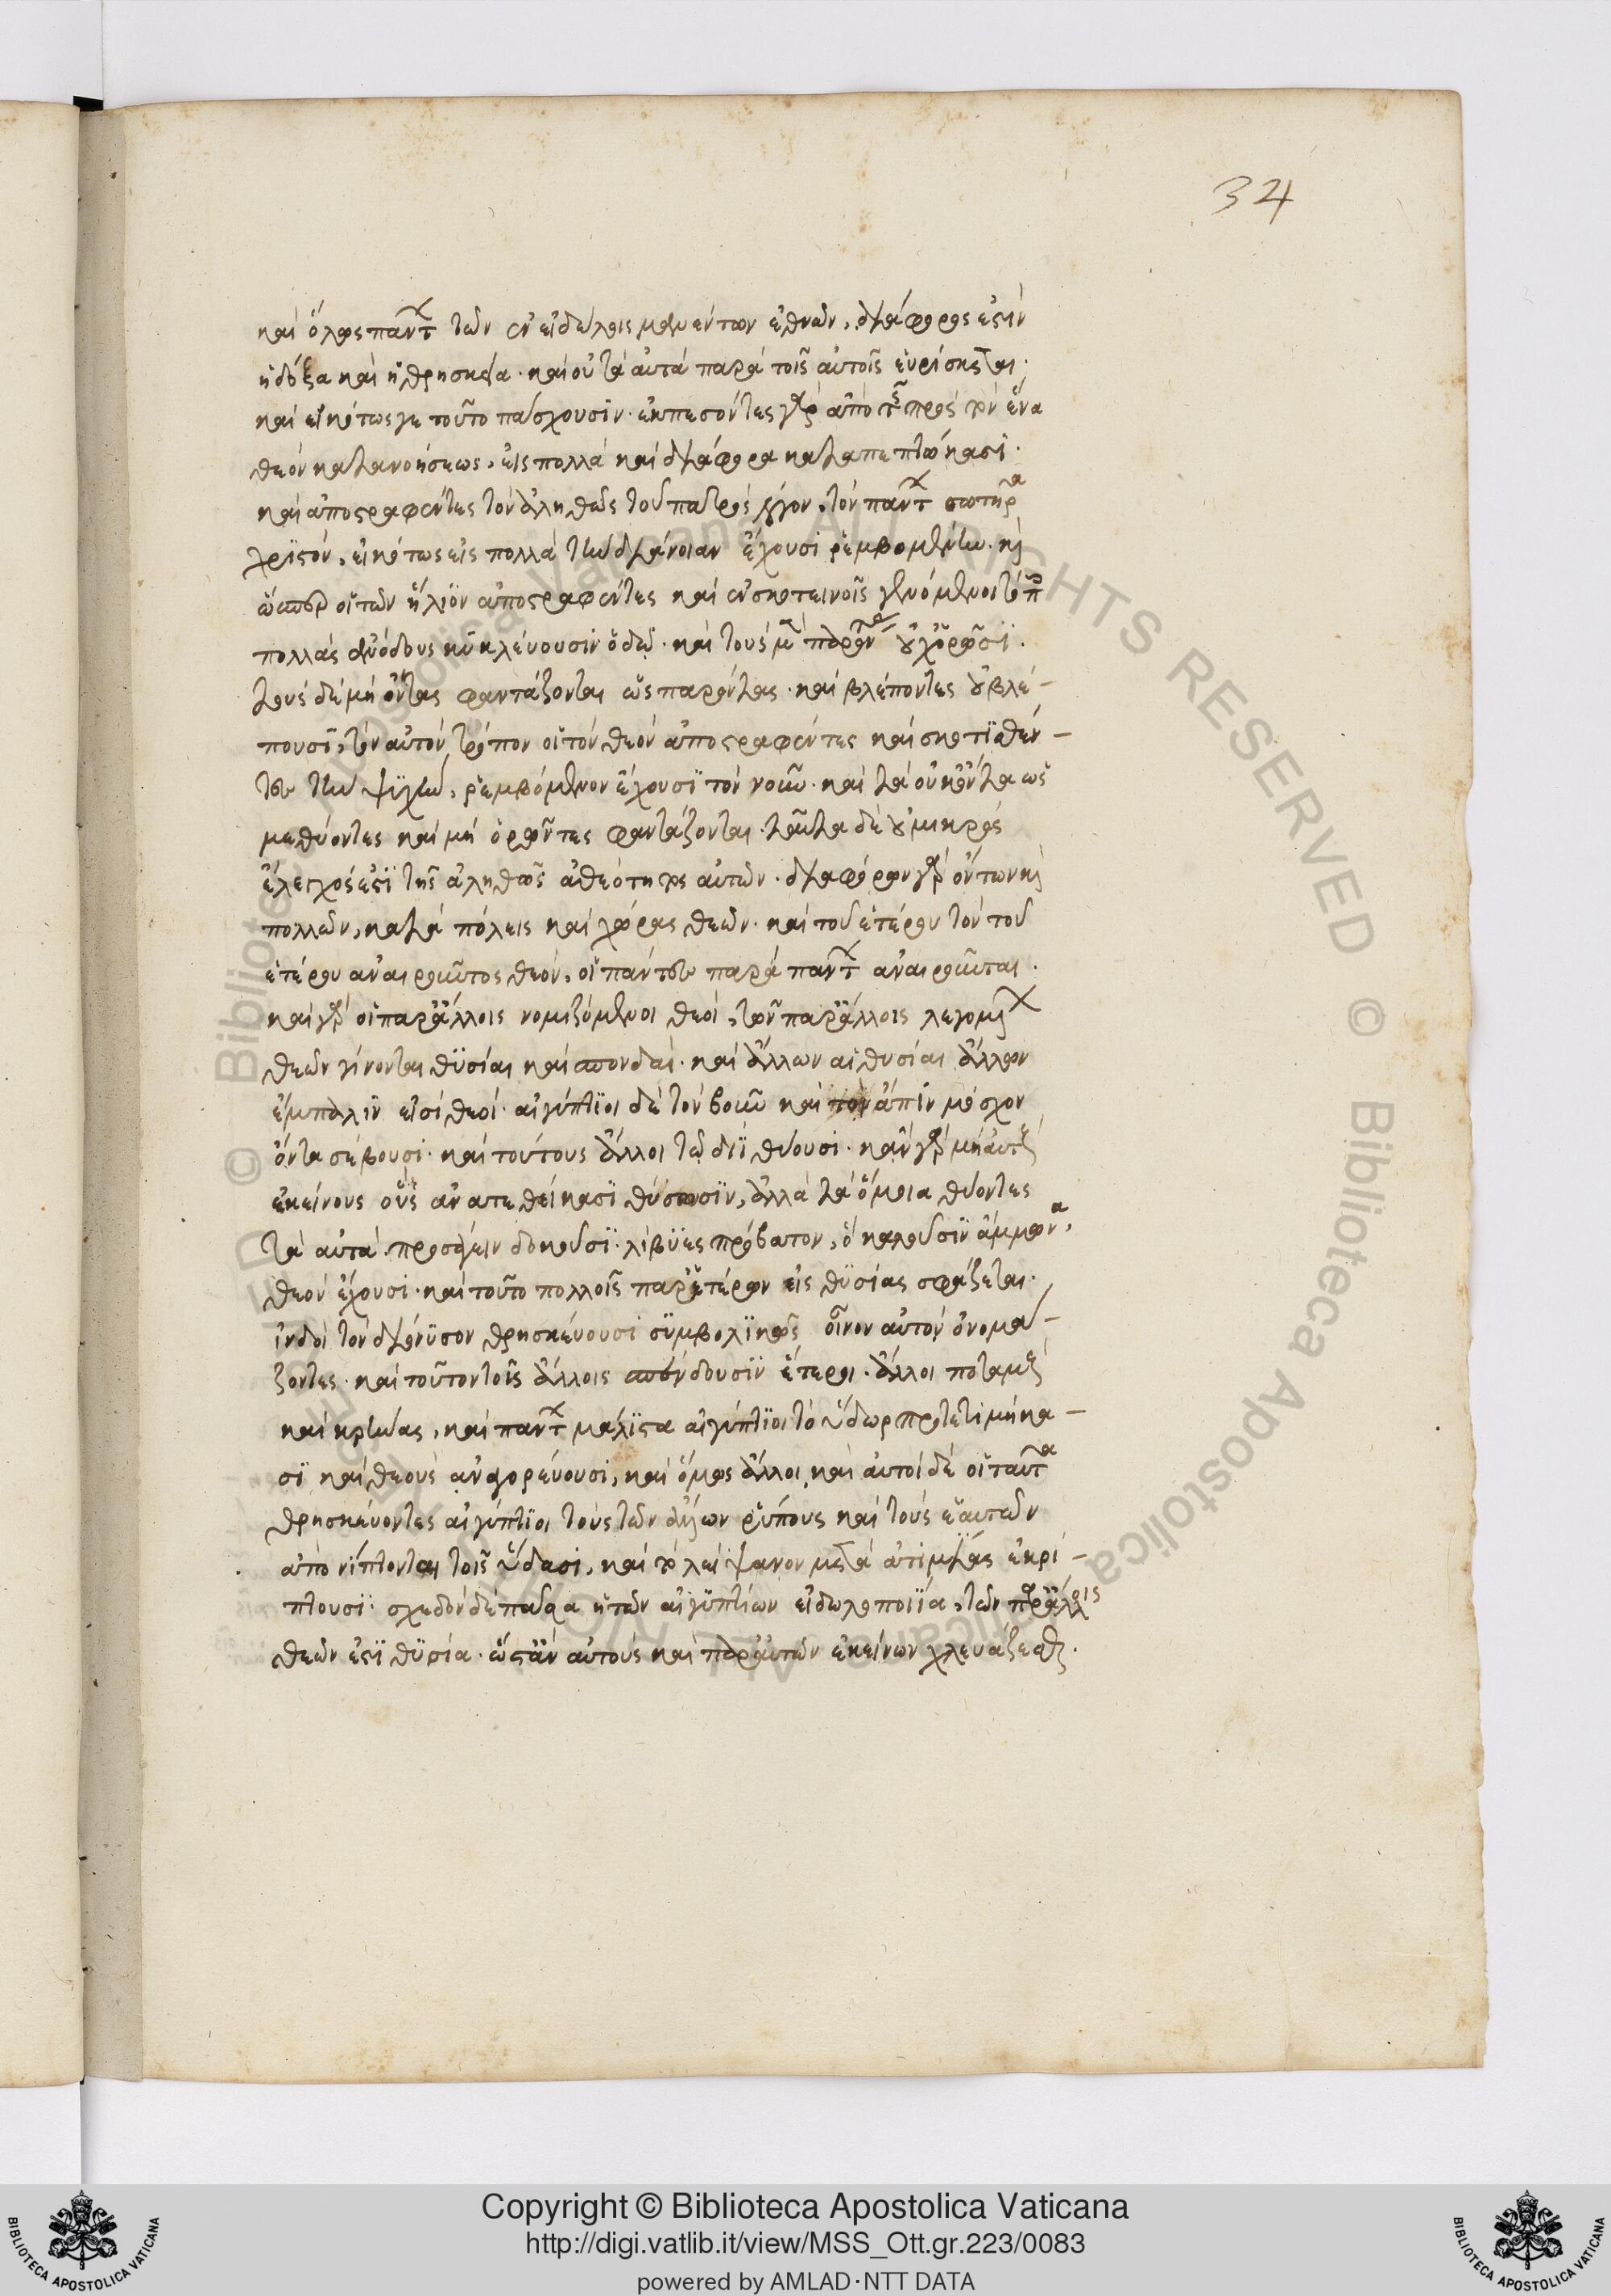 34
καὶ ὅλως παντων τῶν ἐν εἰδώλοις μανέντων ἐθνῶν, διάφορος ἐστιν
ἡ δόξα καὶ ἡ θρησκεία· καὶ οὐ τὰ αὐτὰ παρὰ τοῖς αὐτοῖς εὑρίσκεται·
καὶ εἰκότως γε τοῦτο πάσχουσιν· ἐκπεσόντες γὰρ ἀπὸ τῆς πρὸς τὸν ἕνα
θεὸν κατανοήσεως, εἰς πολλὰ καὶ διάφορα καταπεπτώκασι·
καὶ ἀποστραφέντες τὸν ἀληθῶς τοῦ πατρὸς λόγον, τὸν πάντων σωτῆρα
χριστὸν, εἰκότως εἰς πολλὰ τὴν διάνοιαν ἔχουσι ῥεμβομένην· καὶ
ὥσπερ οἱ τὸν ἥλιον ἀποστραφέντες καὶ ἐν σκοτεινοῖς γενόμενοι τόποις
πολλὰς ἀνόδους κυκλεύουσιν ὁδοὺς· καὶ τοὺς μὲν παρόντας οὐχ ὁρῶσι·
τοὺς δὲ μὴ ὄντας φαντάζονται ὡς παρόντας· καὶ βλέποντες οὐ βλέ-
πουσι, τὸν αὐτὸν τρόπον οἱ τὸν θεὸν ἀποστραφέντες καὶ σκοτισθέν-
τες τὴν ψυχὴν, ῥεμβόμενον ἔχουσι τὸν νοῦν· καὶ τὰ οὐκ ὄντα ὡς
μεθύοντες καὶ μὴ ὁρῶντες φαντάζονται· ταῦτα δὲ οὐ μικρὸς
ἔλεγχός ἐστι τῆς ἀληθῶς ἀθεότητος αὐτῶν· διαφόρων γὰρ ὄντων καὶ
πολλῶν, κατὰ πόλεις καὶ χώρας θεῶν· καὶ τοῦ ἑτέρου τὸν τοῦ
ἑτέρου ἀναιροῦντος θεὸν, οἱ πάντες παρὰ πάντων ἀναιροῦνται·
καὶ γὰρ οἱ παρ' ἄλλοις νομιζόμενοι θεοὶ, τῶν παρ' ἄλλοις λεγομένων
θεῶν γίνονται θυσίαι καὶ σπονδαὶ· καὶ ἄλλων αἱ θυσίαι ἄλλων
ἔμπαλιν εἰσὶ θεοί· αἰγύπτιοι δὲ τὸν βοῦν καὶ τὸν ἄπιν μόσχον
ὄντα σέβουσι· καὶ τούτους ἄλλοι τῷ διῒ θύουσι· κἂν γὰρ μὴ αὐτοὺς
ἐκείνους οὓς ἀνατεθείκασι θύσωσιν, ἀλλὰ τὰ ὅμοια θύοντες
τὰ αὐτὰ προσάγειν δοκοῦσι· λίβυες πρόβατον, ὃ καλοῦσιν ἄμμωνα,
θεὸν ἔχουσι· καὶ τοῦτο πολλοῖς παρ' ἑτέρων εἰς θυσίας σφάζεται·
ἰνδοὶ τὸν διόνυσον θρησκεύουσι συμβολικῶς οἶνον αὐτὸν ὀνομά-
ζοντες· καὶ τοῦτον τοῖς ἄλλοις σπένδουσιν ἕτεροι· ἄλλοι ποταμοὺς
καὶ κρήνας, καὶ πάντων μάλιστα αἰγύπτιοι τὸ ὕδωρ προτετιμήκα-
σι καὶ θεοὺς ἀναγορεύουσι, καὶ ὅμως ἄλλοι καὶ αὐτοὶ δὲ οἱ ταῦτα
θρησκεύοντες αἰγύπτιοι τοὺς τῶν ἄλλων ῥύπους καὶ τοὺς ἑαυτῶν
ἀπονίπτονται τοῖς ὕδασι, καὶ τὸ λείψανον μετὰ ἀτιμίας ἐκρί-
πτουσι· σχεδὸν δὲ πᾶσα ἡ τῶν αἰγυπτίων εἰδωλοποιΐα, τῶν παρ' ἄλλοις
θεῶν ἐστὶ θυσία· ὥστ' ἂν αὐτοὺς καὶ παρ' αὐτῶν ἐκείνων χλευάζεσθαι·
© Biblioteca Apostolica Vaticana ALL RIGHTS RESERVED
Copyright © Biblioteca Apostolica Vaticana
http://digi.vatlib.it/view/MSS_Ott.gr.223/0083
powered by AMLAD·NTT DATA
BIBLIOTECA APOSTOLICA VATICANA
BIBLIOTECA APOSTOLICA VATICANA